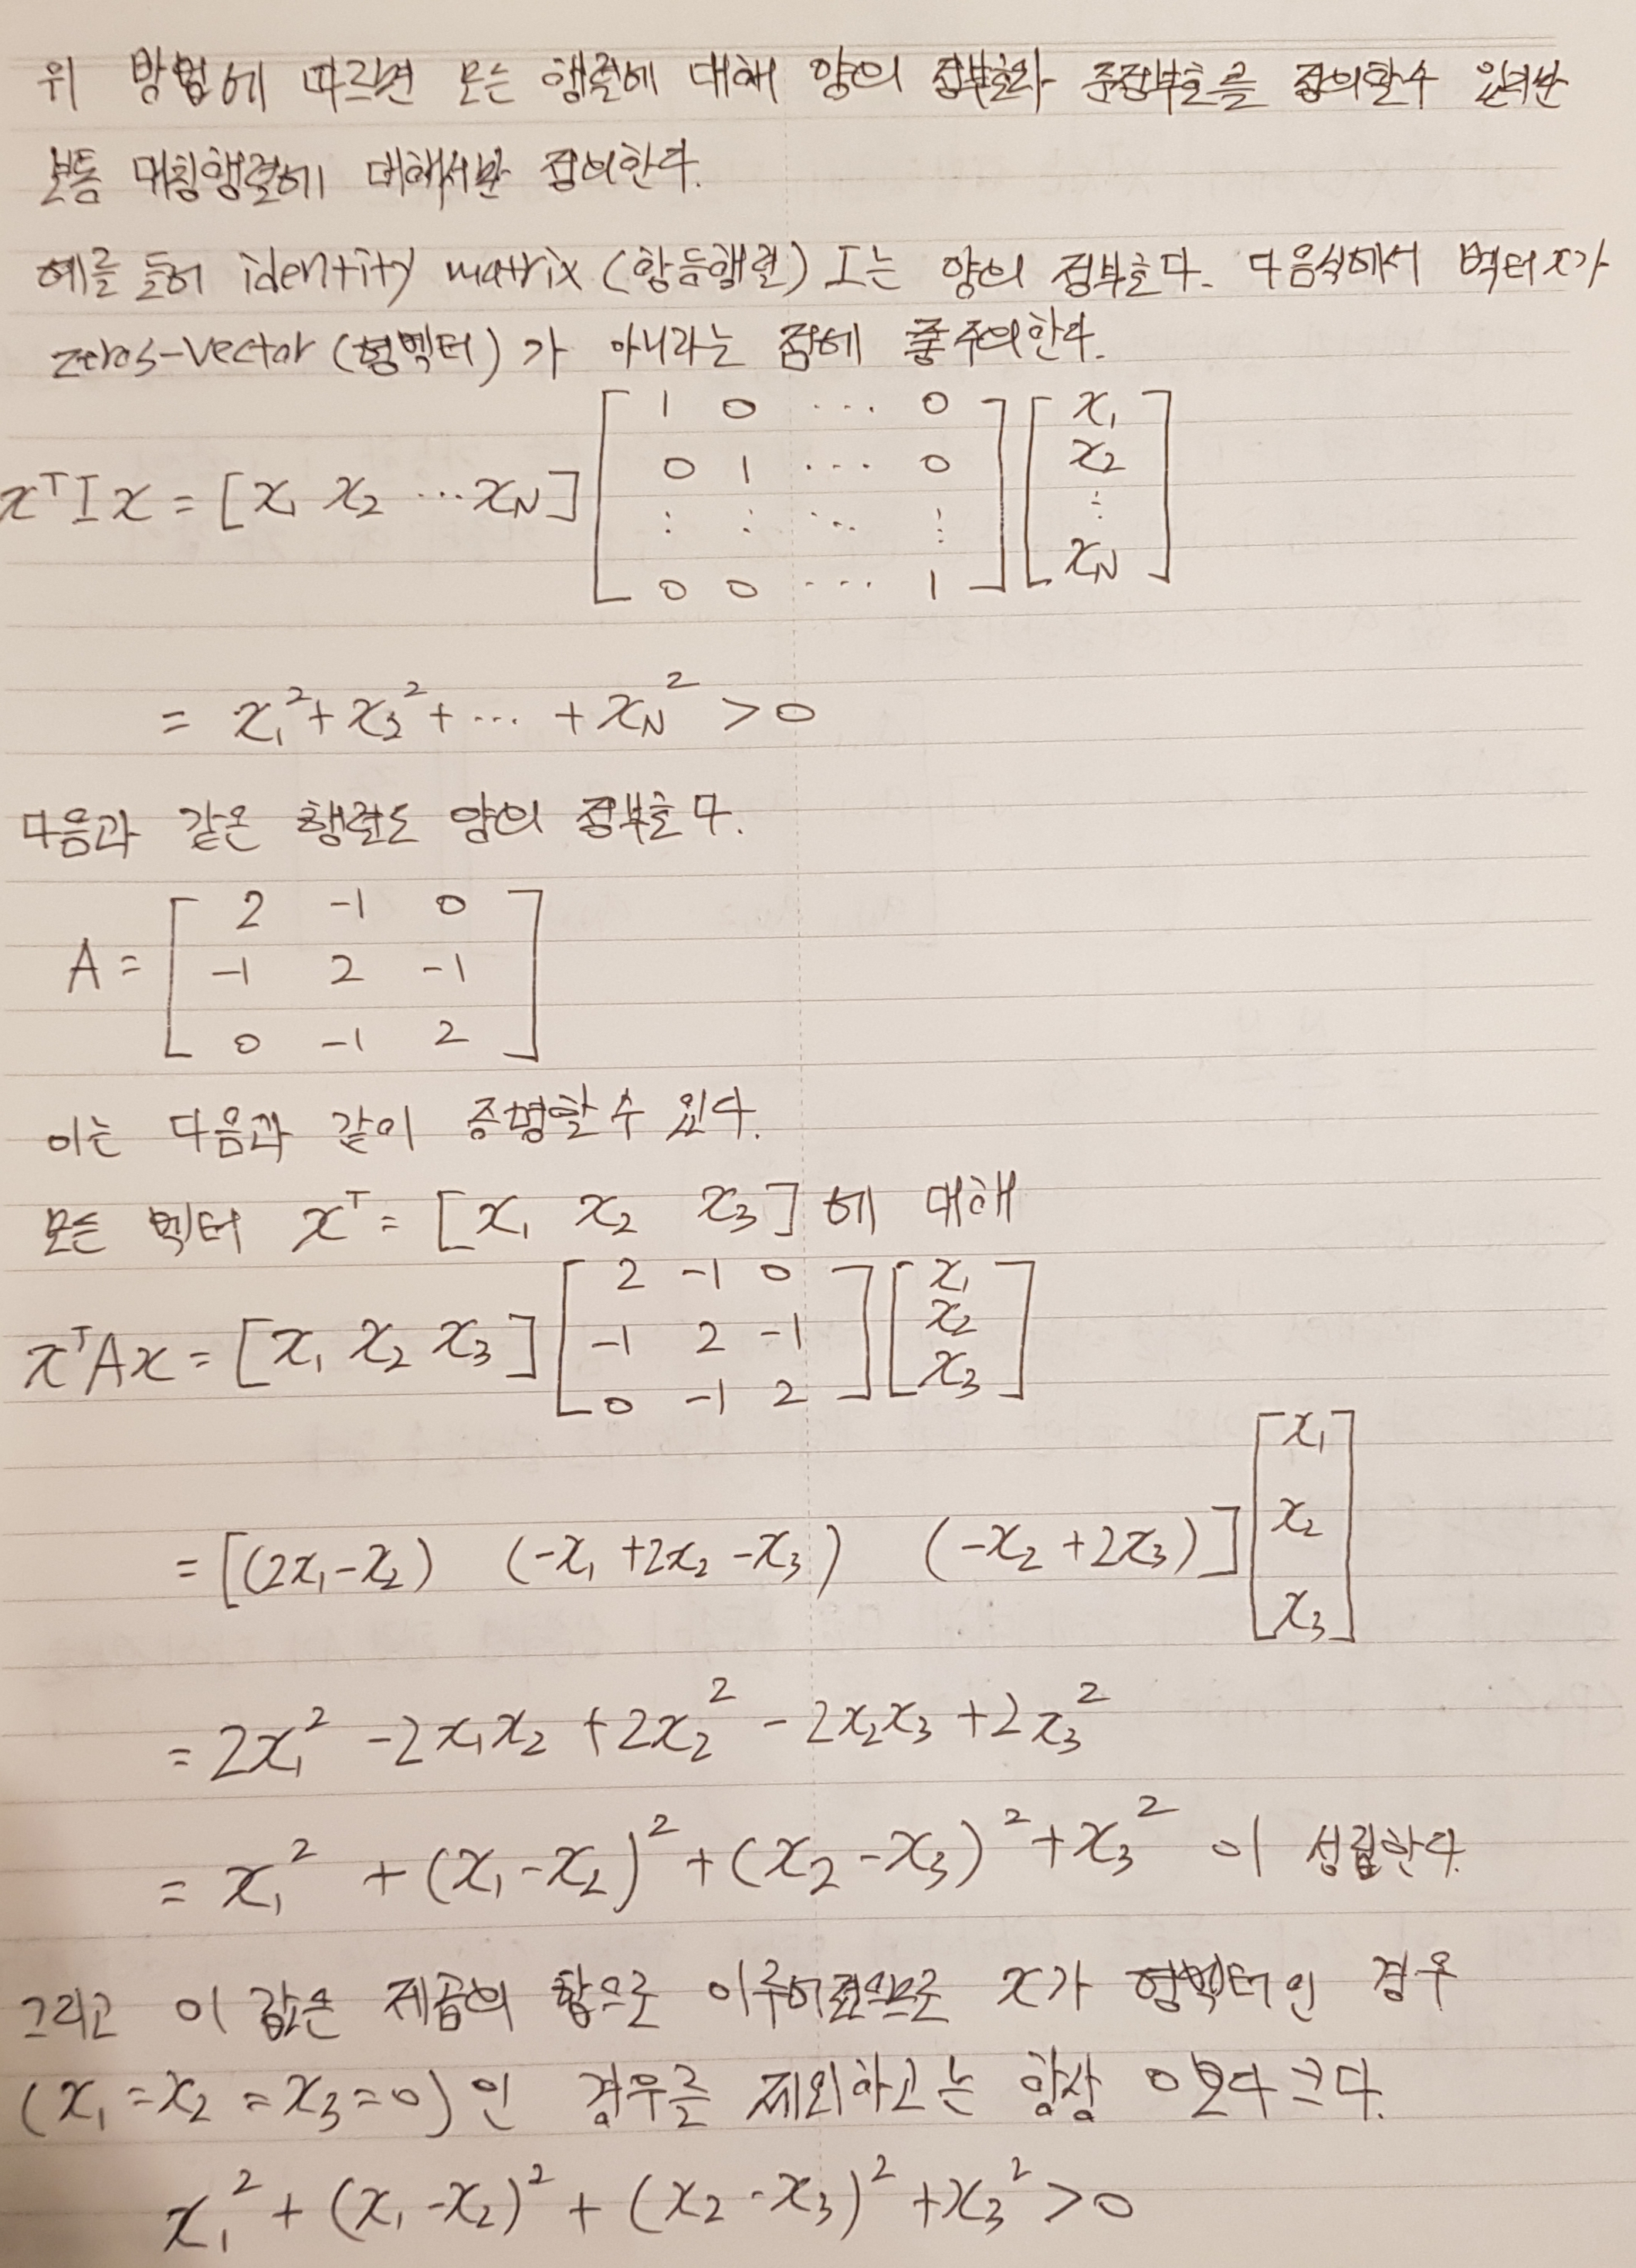 위 방법에 따르면 모든 행렬에 대해 양의 정부호와 준정부호를 정의할수 있지만
보통 대칭행렬에 대해서만 정의한다.
예를 들어 identity matrix (항등행렬) I는 양의 정부호다. 다음식에서 벡터 x가
zeros-vector (영벡터) 가 아니라는 점에 주의한다.
xᵀIx = [x₁ x₂ ⋯ xN] [1 0 ⋯ 0; 0 1 ⋯ 0; ⋮ ⋮ ⋱ ⋮; 0 0 ⋯ 1] [x₁; x₂; ⋮; xN]
= x₁² + x₂² + ⋯ + xN² > 0
다음과 같은 행렬도 양의 정부호다.
A = [2 -1 0; -1 2 -1; 0 -1 2]
이는 다음과 같이 증명할 수 있다.
모든 벡터 xᵀ = [x₁ x₂ x₃] 에 대해
xᵀAx = [x₁ x₂ x₃] [2 -1 0; -1 2 -1; 0 -1 2] [x₁; x₂; x₃]
= [(2x₁-x₂) (-x₁+2x₂-x₃) (-x₂+2x₃)] [x₁; x₂; x₃]
= 2x₁² - 2x₁x₂ + 2x₂² - 2x₂x₃ + 2x₃²
= x₁² + (x₁-x₂)² + (x₂-x₃)² + x₃² 이 성립한다.
그리고 이 값은 제곱의 합으로 이루어졌으므로 x가 영벡터인 경우
(x₁=x₂=x₃=0)인 경우를 제외하고는 항상 0보다 크다.
x₁² + (x₁-x₂)² + (x₂-x₃)² + x₃² > 0